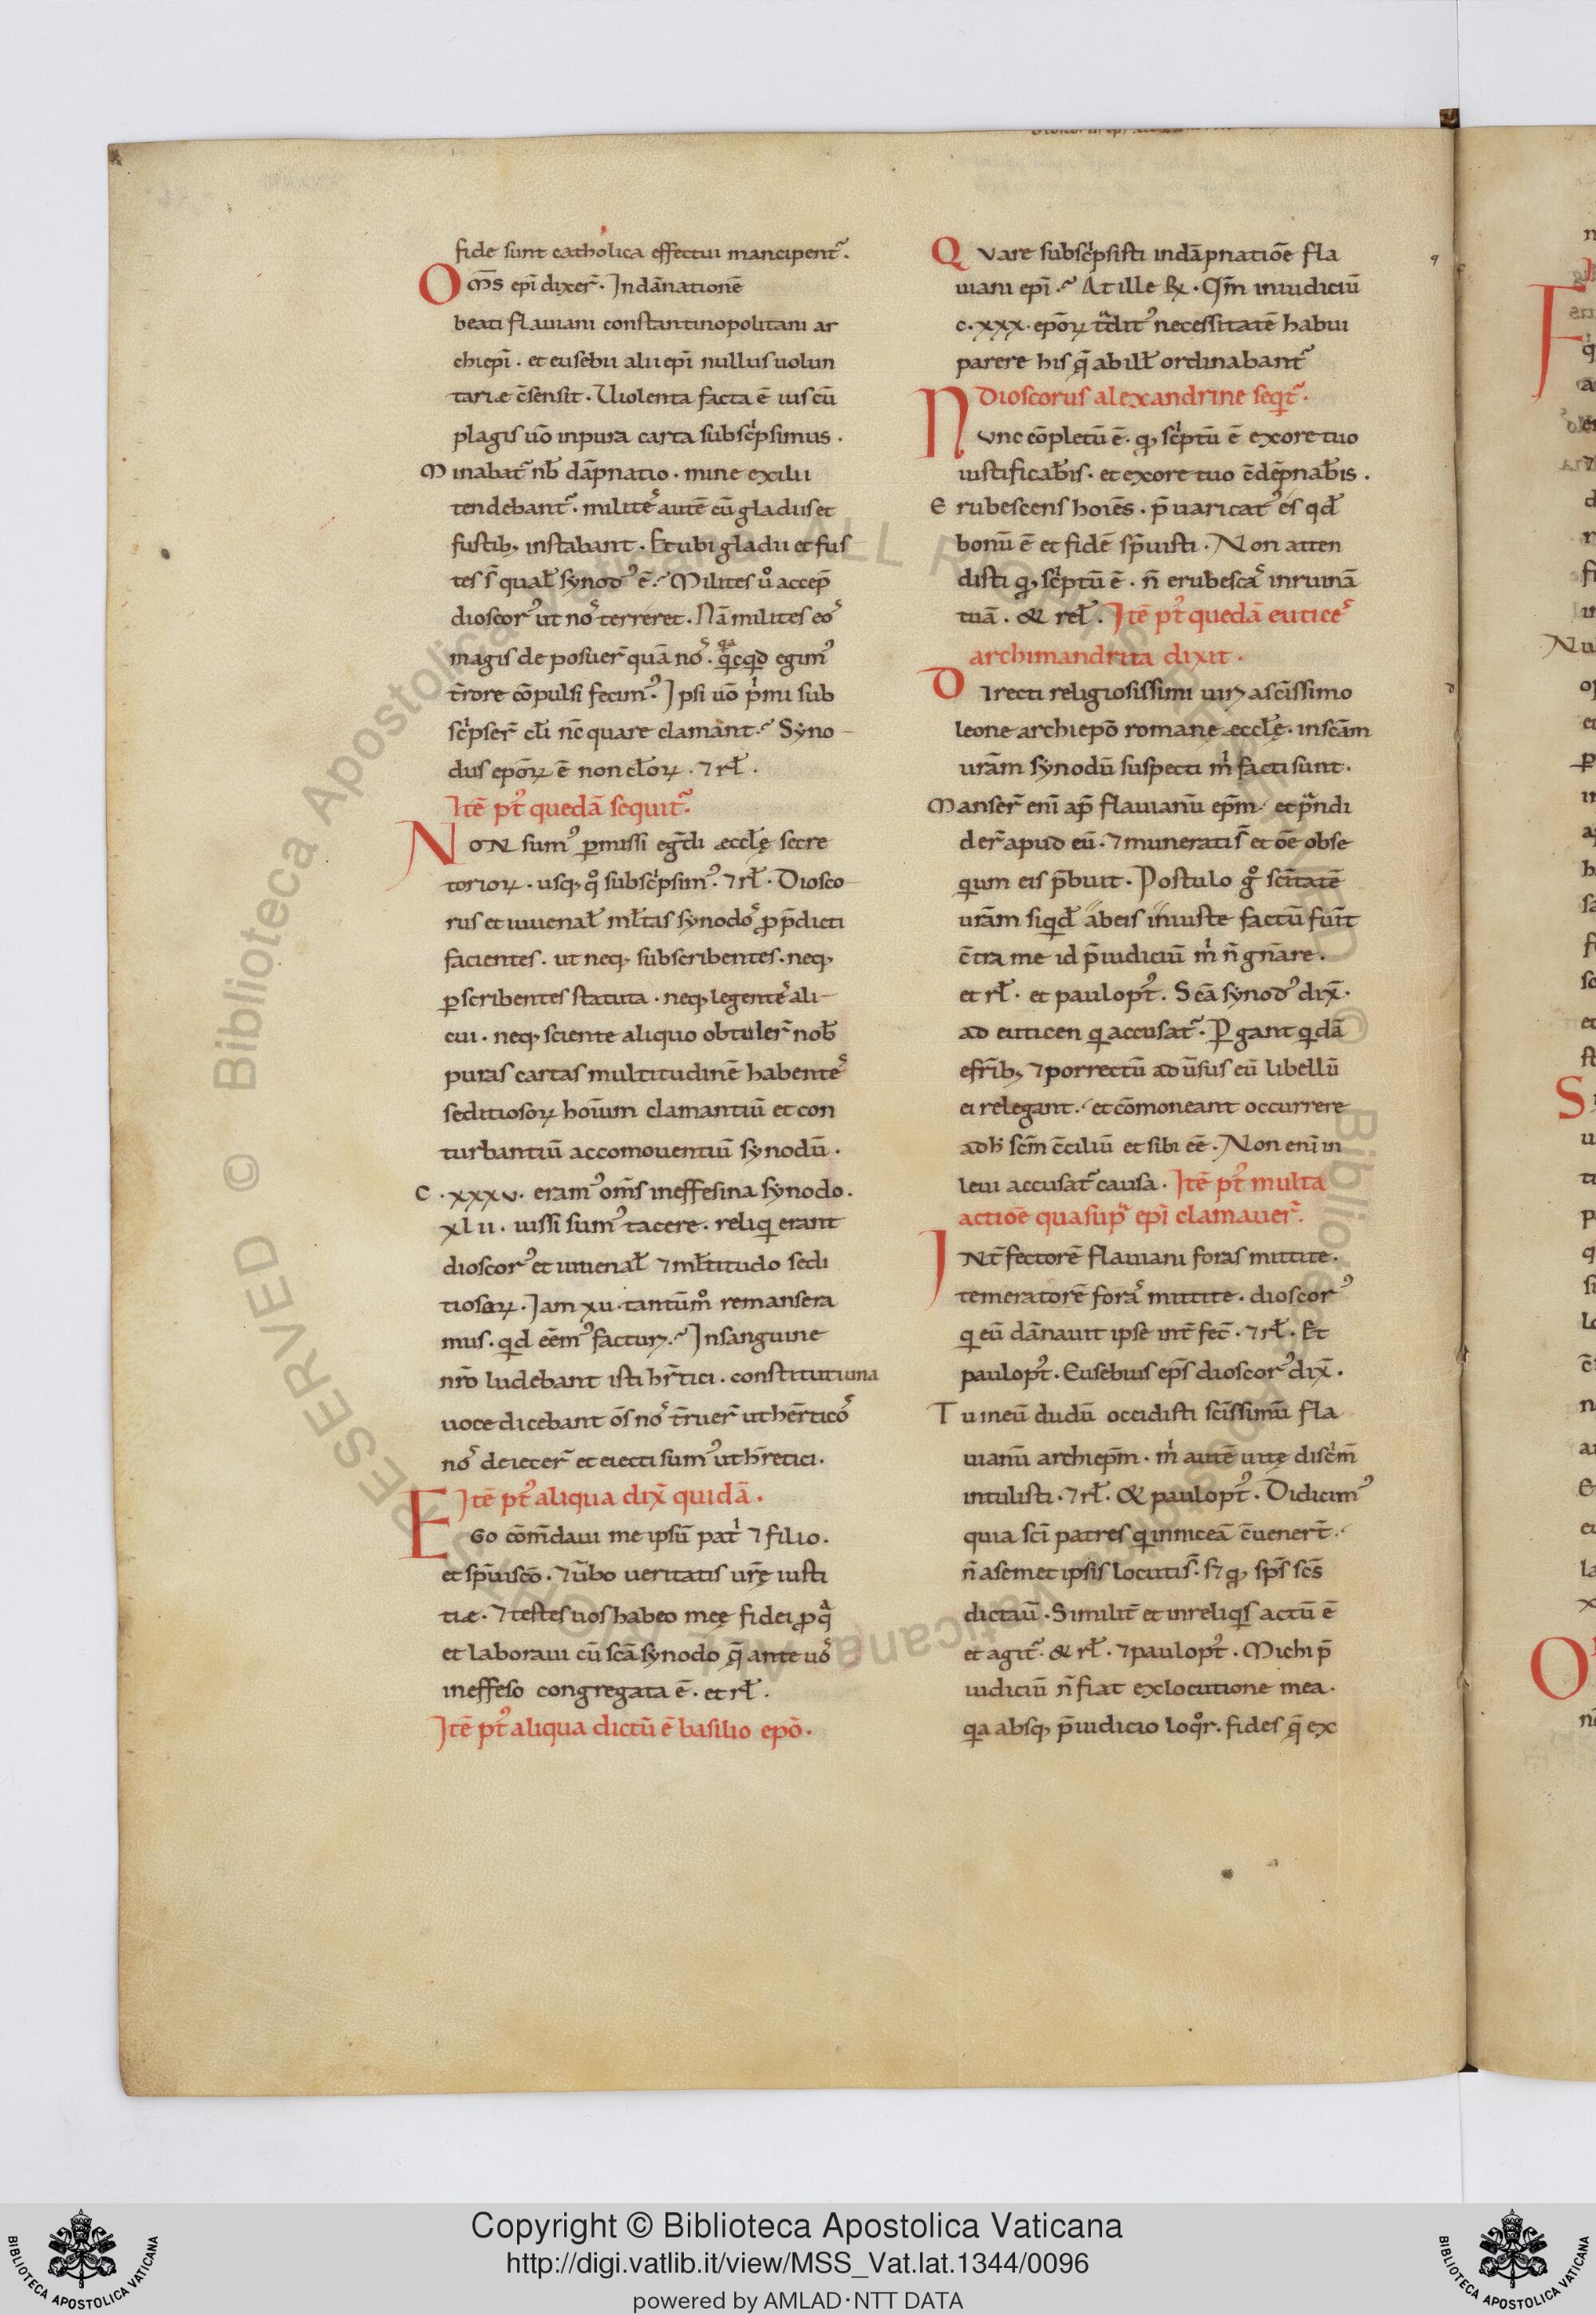 fide sunt catholica effectui mancipent᷑.
Om̅s ep̅i dixer̅. In da̅natione̅
beati flauiani constantinopolitani ar
chiep̅i. et eusebii alii ep̅i nullus uolun
tarie c̅sensit. Uiolenta facta e̅ uis cu̅
plagis uo̅ in pura carta subsc͛psimus.
Minabat᷑ nb̅ da̅pnatio. mine exilii
tendebant᷑. milite᷒ aute̅ cu̅ gladiis et
fustib; instabant. Et ubi gladii et fus
tes s̅ qual̅ synodꝰ e̅. Milites ů accep̅
dioscorꝰ ut no᷒ terreret. Na̅ milites eo᷒
magis deposuer̅ qua̅ no᷒. egimꝰ
t̅rore co̅pulsi fecimꝰ. Ipsi uo̅ pͥmi sub
sc͛pser̅ cl̅i nc̅ quare clamant. Syno
dus epo̅ꝝ e̅ non cl̅oꝝ. ⁊ rl̅.
Ite̅ ptꝰ queda̅ sequit᷑.
NON sumꝰ ꝑmissi eg̅di eccl̅ę secre
torioꝝ. usq; q̊ subsc͛psimꝰ. ⁊ rl̅. Diosco
rus et iuuenal̅ ml̅tas synodo᷒ ꝓp̅dicti
facientes. ut neq; subscribentes. neq;
ꝑscribentes statuta. neq; legente᷒ ali
cui. neq; sciente aliquo obtuler̅ nob̅
puras cartas multitudine̅ habente᷒
seditiosoꝝ hoi̅um clamantiu̅ et con
turbantiu̅ accomouentiu̅ synodu̅.
C.xxxv. eramꝰ om̅s in effesina synodo.
xlii. iussi sumꝰ tacere. reliqi erant
dioscorꝰ et iuuenal̅ ⁊ ml̅titudo sedi
tiosoꝝ. Iam xu. tantu̅m̊ remansera
mus. qid ee̅mꝰ facturi. In sanguine
nr̅o ludebant isti hr̅tici. constituti una
uoce dicebant o̅s no᷒ t̅ruer̅ ut he̅rtico᷒
no᷒ deiecer̅ et eiecti sumꝰ ut hr̅etici.
Ite̅ ptꝰ aliqua dix̅ quida̅.
EGo co̅m̅daui me ipsu̅ patͥ ⁊ filio.
et sp̅ui sc̅o. ⁊ u̅bo ueritatis ur̅ę iusti
tiæ. ⁊ testes uos habeo meę fidei ꝓ qͣ
et laboraui cu̅ sc̅a synodo q̅ ante uo᷒
in effeso congregata e̅. et rl̅.
Ite̅ ptꝰ aliqua dictu̅ e̅ basilio epo̅.
Quare subsc͛psisti in da̅pnatio̅e fla
uiani ep̅i. At ille ℞. Qm̅ in iudiciu̅
c.xxx. epo̅ꝝ tͣditꝰ necessitate̅ habui
parere his q̅ ab ill̅ ordinabant᷑
Dioscorus alexandrine seqit᷑.
Nunc co̅pletu̅ e̅. qd̅ sc͛ptu̅ e̅ ex ore tuo
iustificab̅is. et ex ore tuo c̅de̅pnab̅is.
Erubescens hoi̅es. p̅uaricatꝰ es qd̅
bonu̅ e̅ et fide̅ sp̅uisti. Non atten
disti qd̅ sc͛ptu̅ e̅. n̅ erubesca᷒ in ruina̅
tua̅. & rel̅. Ite̅ ptꝰ queda̅ eutice᷒
archimandrita dixit.
Directi religiosissimi uiri a sc̅issimo
leone archiepo̅ romane eccl̅ę. in sc̅am
ura̅m synodu̅ suspecti mͥ facti sunt.
Manser̅ eni̅ ap̅ flauianu̅ ep̅m. et pͣndi
der̅ apud eu̅. ⁊ munerati s̅ et oe̅ obse
qium eis p̅buit. Postulo g̊ sc̅itate̅
ura̅m siqid̅ ab eis iniuste factu̅ fuit̅
c̅tra me id p̅iudiciu̅ mͥ n̅ gn̅are.
et rl̅. et paulo ptꝰ. Sc̅a synodꝰ dix̅.
ad euticen qi accusat᷑. Pergant qida̅
e fr̅ib; ⁊ porrectu̅ aduersus eu̅ libellu̅
ei relegant. et co̅moneant occurrere
ad h̅ sc̅m c̅ciliu̅ et sibi ee̅. Non eni̅ in
leui accusat᷑ causa. Ite̅ ptꝰ multa
actio̅e qua supͣ ep̅i clamauer̅.
INt̅fectore̅ flauiani foras mittite.
temeratore̅ fora᷒ mittite. dioscorꝰ
qi eu̅ da̅nauit ipse int̅fec̅. ⁊ rl̅. Et
paulo ptꝰ. Eusebius ep̅s dioscorꝰ dix̅.
Tu meu̅ dudu̅ occidisti sc̅issimu̅ fla
uianu̅ archiep̅m. mͥ aute̅ uitę disc͛m̅
intulisti. ⁊ rl̅. & paulo ptꝰ. Didicimꝰ
quia sc̅i patres qi in nicea̅ c̅uenert̅.
n̅ a semet ipsis locuti s̅. s; qd̅ sp̅s sc̅s
dictau̅. Similit̅ et in reliqis actu̅ e̅
et agit᷑. & rl̅. ⁊ paulo ptꝰ. Michi p̅
iudiciu̅ n̅ fiat ex locutione mea.
qia absq; p̅iudicio loq̊r. fides q̅ ex
Copyright © Biblioteca Apostolica Vaticana
http://digi.vatlib.it/view/MSS_Vat.lat.1344/0096
powered by AMLAD·NTT DATA